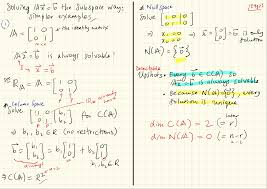 Solving A x = b the subspace way:
simpler examples...
① A = [1 0
0 1] the identity matrix
A x = b is always solvable!
R_A = [1 0
0 1]
Column Space
Solve [1 0 | b1
0 1 | b2]
⇒ b1, b2 ∈ R (no restrictions)
b = [b1
b2] = b1 [1
0] + b2 [0
1]
b1, b2 ∈ R
⇒ C(A) = R²
Nullspace
Solve [1 0 | 0
0 1 | 0]
⇒ x1 = 0
x2 = 0 ⇒ x = [0
0]
N(A) = {0}
Upshots: • Every b ∈ C(A) so
A x = b is always solvable
• Because N(A) = {0}, every
solution is unique
dim C(A) = 2 (= r)
dim N(A) = 0 (= n - r)